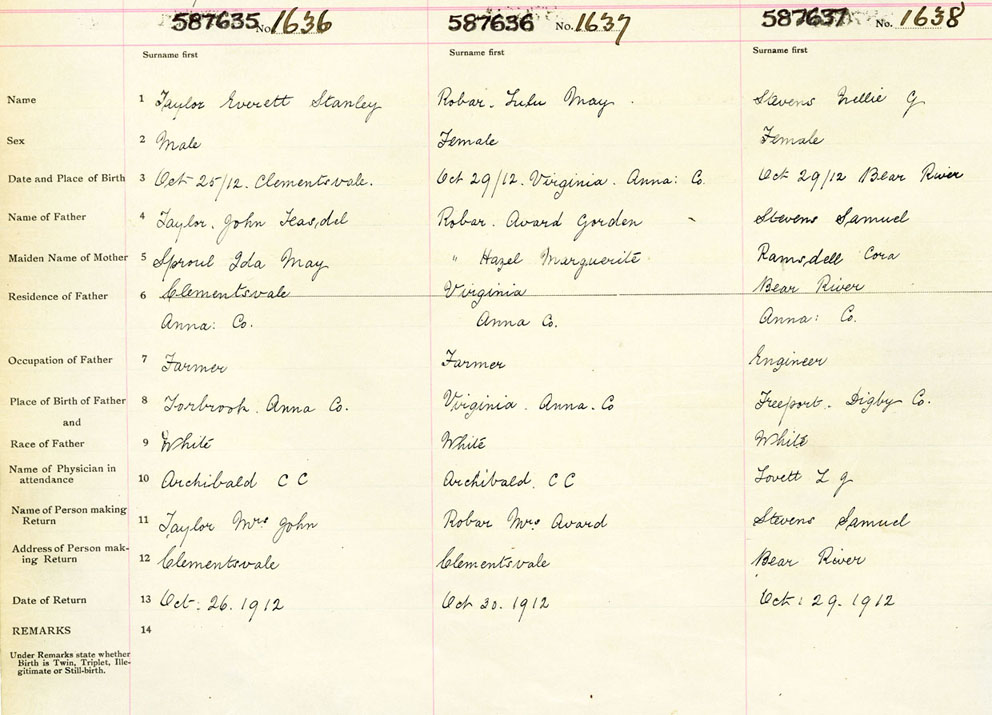 587635 No. 1636 587636 No. 1637 587637 No. 1638
Surname first Surname first Surname first
Name 1 Taylor Everett Stanley Robar. Lulu May. Stevens Nellie G
Sex 2 Male Female Female
Date and Place of Birth 3 Oct 25/12. Clementsvale. Oct 29/12. Virginia. Anna: Co. Oct 29/12 Bear River
Name of Father 4 Taylor. John Teasdel Robar. Avard Gorden Stevens Samuel
Maiden Name of Mother 5 Sproul Ida May " Hazel Marguerite Ramsdell Cora
Residence of Father 6 Clementsvale Virginia Bear River
Anna: Co. Anna Co. Anna: Co.
Occupation of Father 7 Farmer Farmer Engineer
Place of Birth of Father 8 Torbrook. Anna Co. Virginia. Anna. Co Freeport. Digby Co.
and
Race of Father 9 White White White
Name of Physician in
attendance 10 Archibald C C Archibald. C C Lovett L J
Name of Person making
Return 11 Taylor Mrs John Robar Mrs Avard Stevens Samuel
Address of Person mak-
ing Return 12 Clementsvale Clementsvale Bear River
Date of Return 13 Oct: 26. 1912 Oct 30. 1912 Oct: 29. 1912
REMARKS 14
Under Remarks state whether
Birth is Twin, Triplet, Ille-
gitimate or Still-birth.